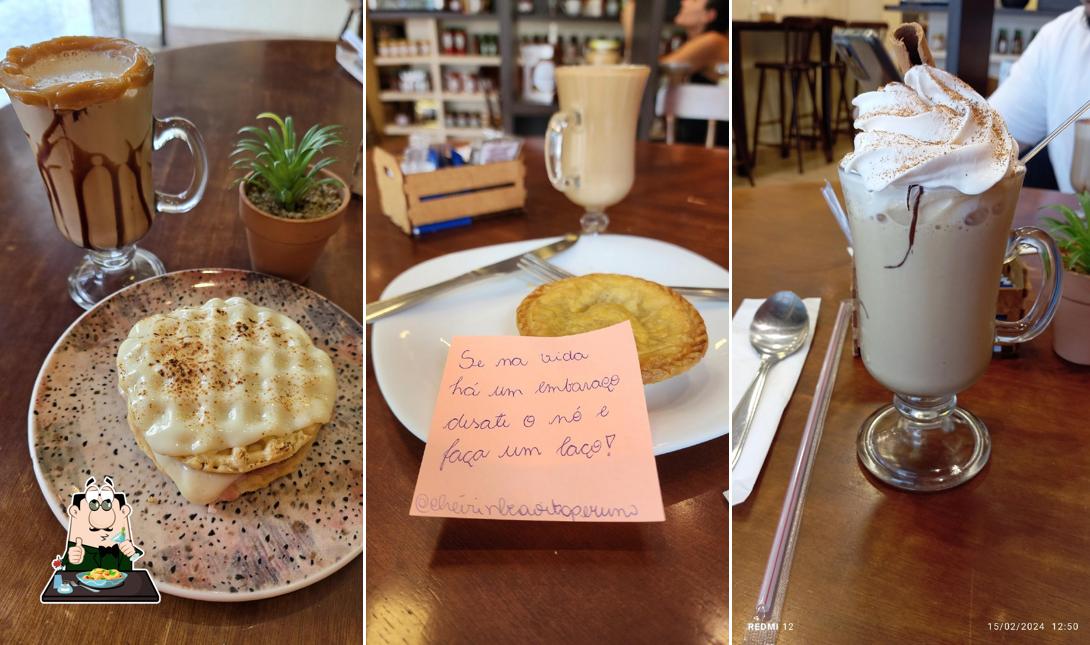 Se na vida
há um embaraço
desate o nó e
faça um laço!
REDMI 12
15/02/2024 12:50